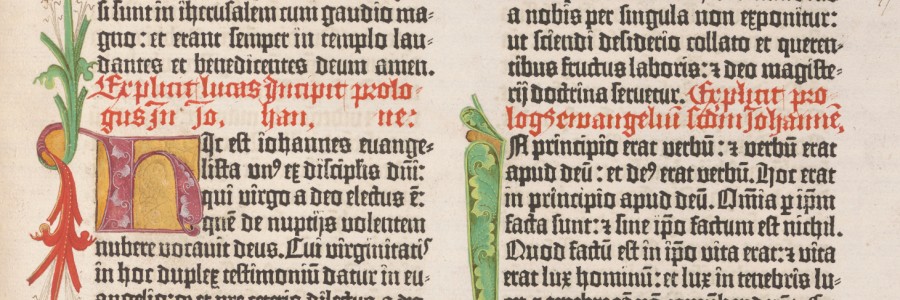 si sunt in iherusalem cum gaudio ma⸗
gno: et erant semper in templo lau⸗
dantes et benedicentes deum amen.
Explicit lucas Incipit prolo⸗
gus In Jo, han, ne:
Hic est iohannes euange⸗
lista vnꝰ ex discipĺis dñi:
qui virgo a deo electus ē:
quē de nuptijs volentem
nubere vocauit deus. Cui virginitatꝭ
in hoc duplex testimoniū datur in eu⸗
a nobis per singula non exponitur:
ut sciendi desiderio collato et queren⸗
tibus fructus laboris: ⁊ deo magiste⸗
rij doctrina seruetur. Explicit pro
logꝰ Ewangeliū scďm Johannē,
In principio erat verbū: ⁊ verbū erat
apud deū: et deꝰ erat verbū. Hoc erat
in principio apud deū. Om̄ia ꝑ ip̄m
facta sunt: ⁊ sine ip̄o factum est nichil.
Quod factū est in ip̄o vita erat: ⁊ vita
erat lux hominū: et lux in tenebris lu⸗